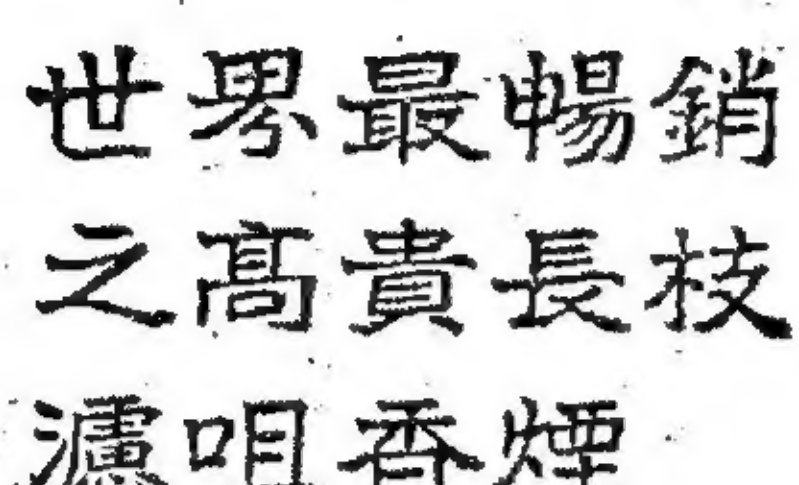 世界最暢銷
之高貴長枝
濾咀香煙